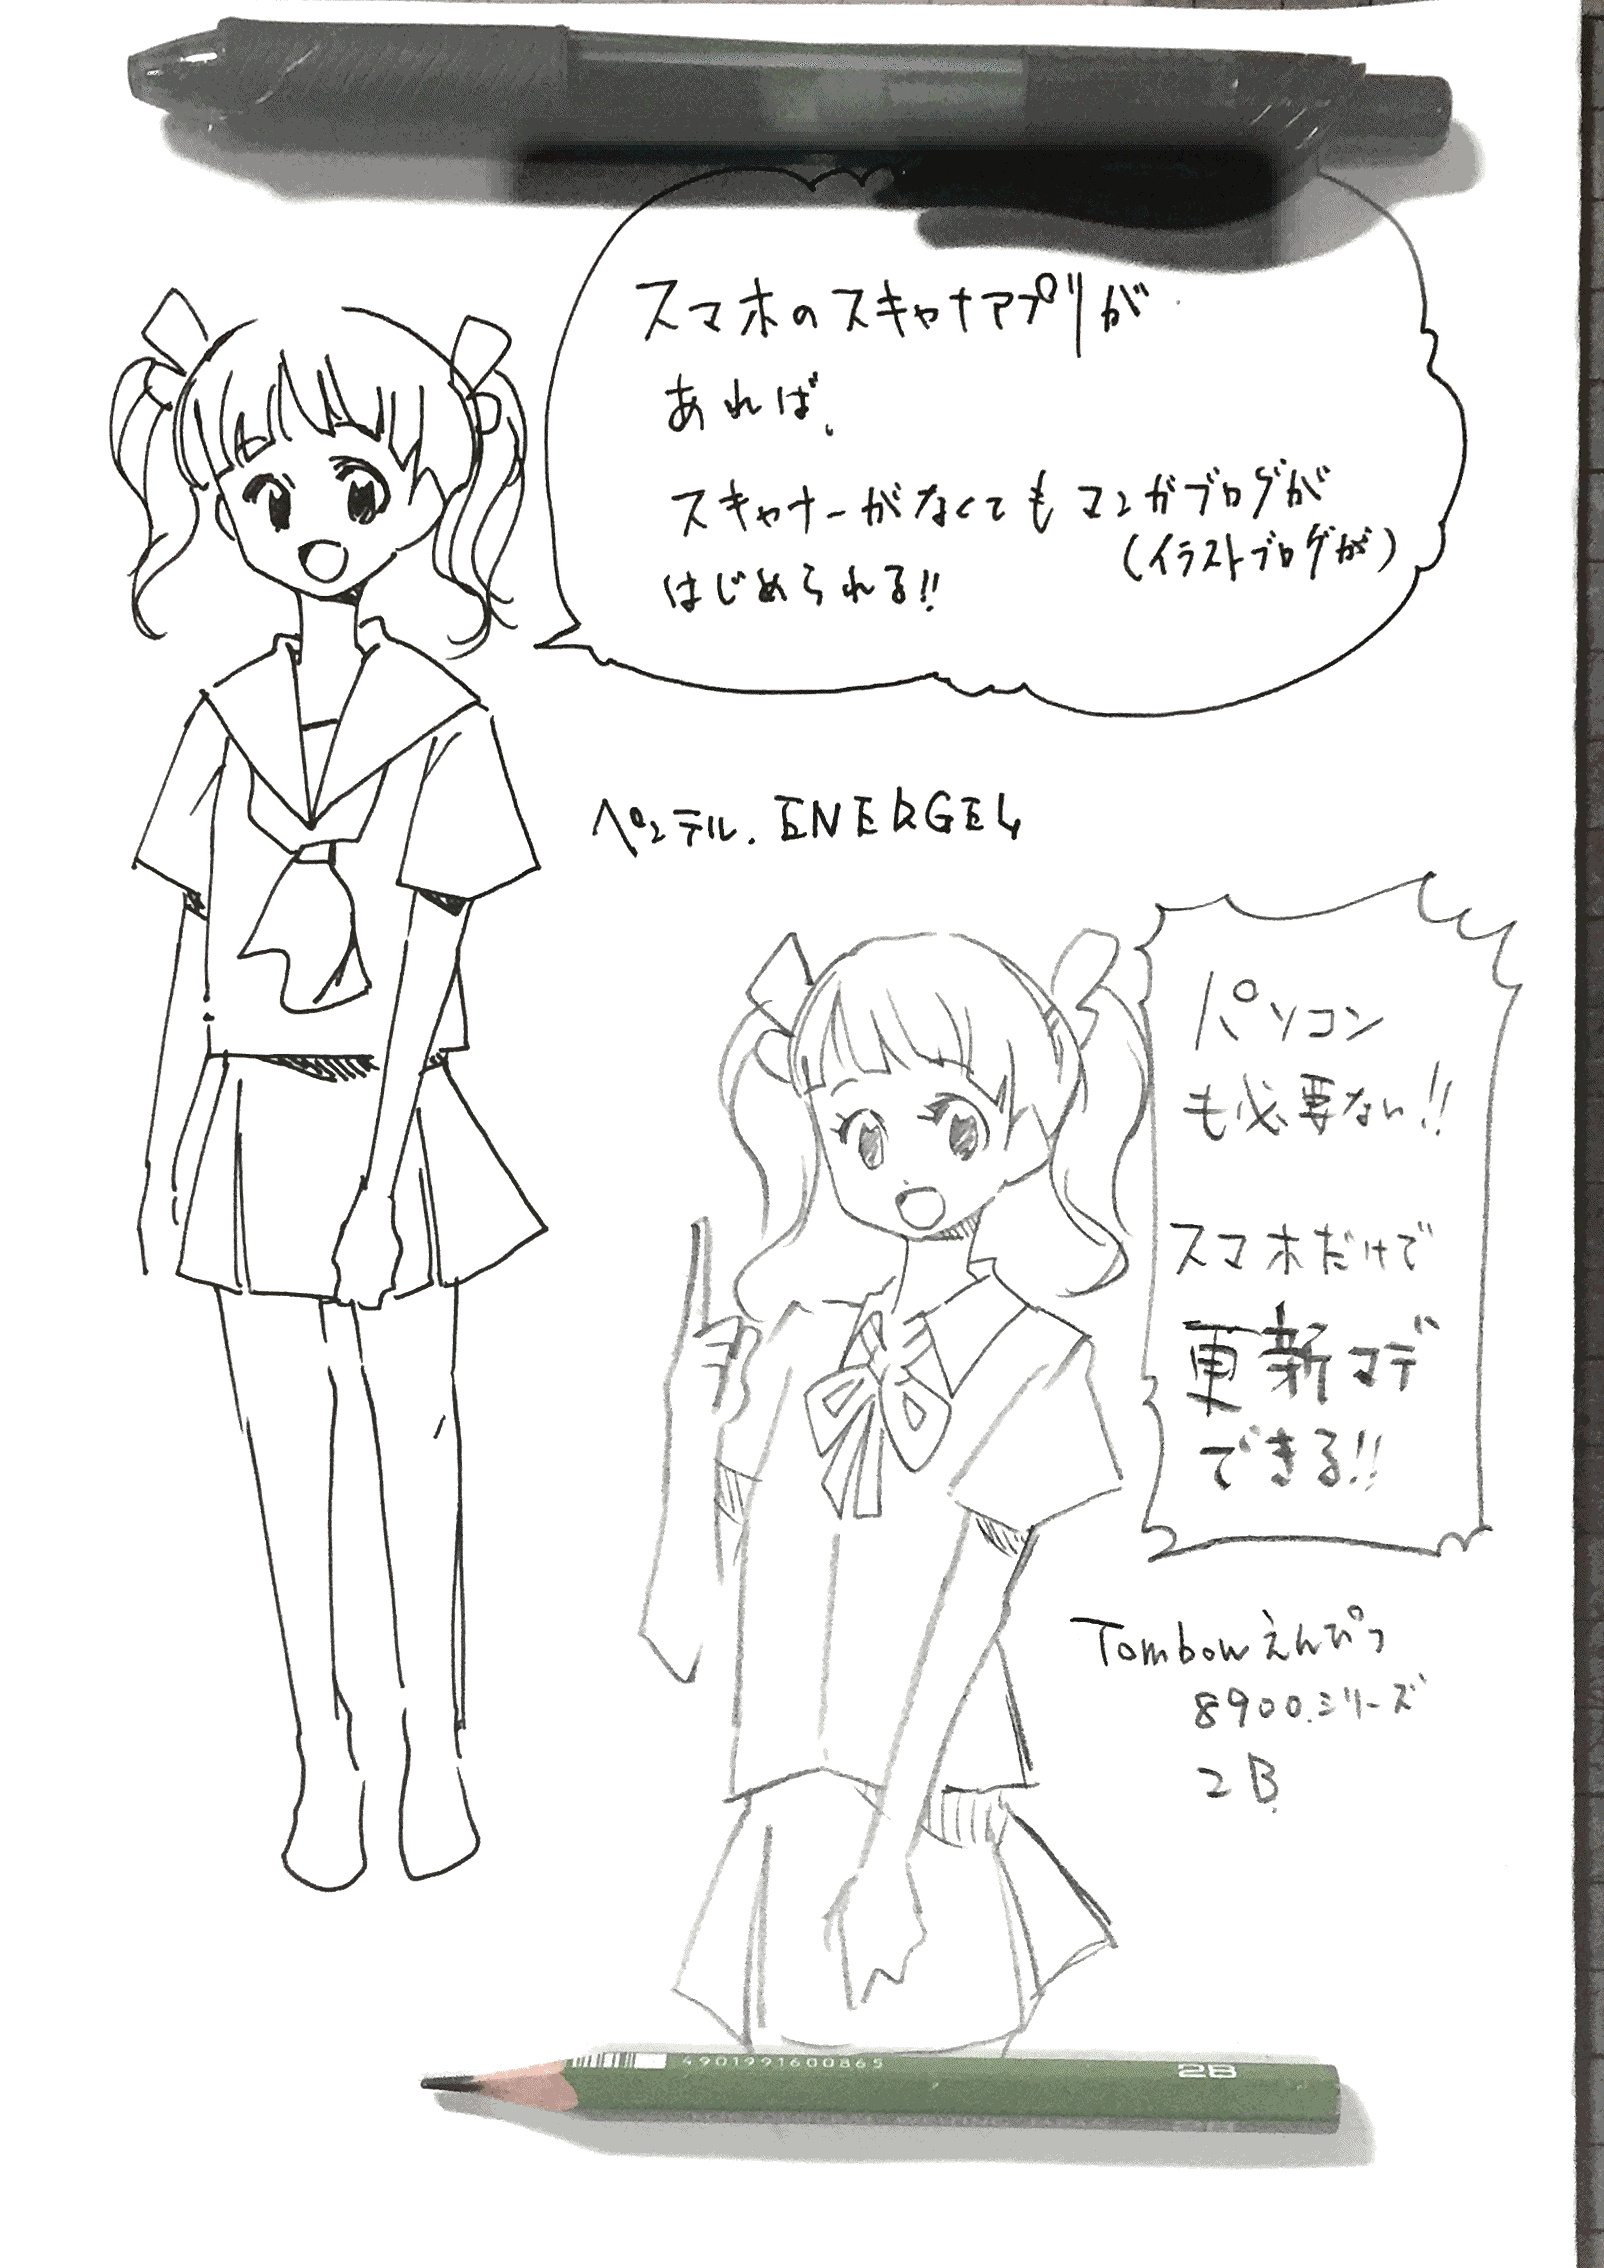 スマホのスキャナアプリが
あれば、
スキャナーがなくてもマンガブログが
(イラストブログが)
はじめられる!!
ぺんテル.ENERGEL
パソコン
も必要ない!!
スマホだけで
更新マデ
できる!!
Tombowえんぴつ
8900.シリーズ
2B
4901991600865
2B